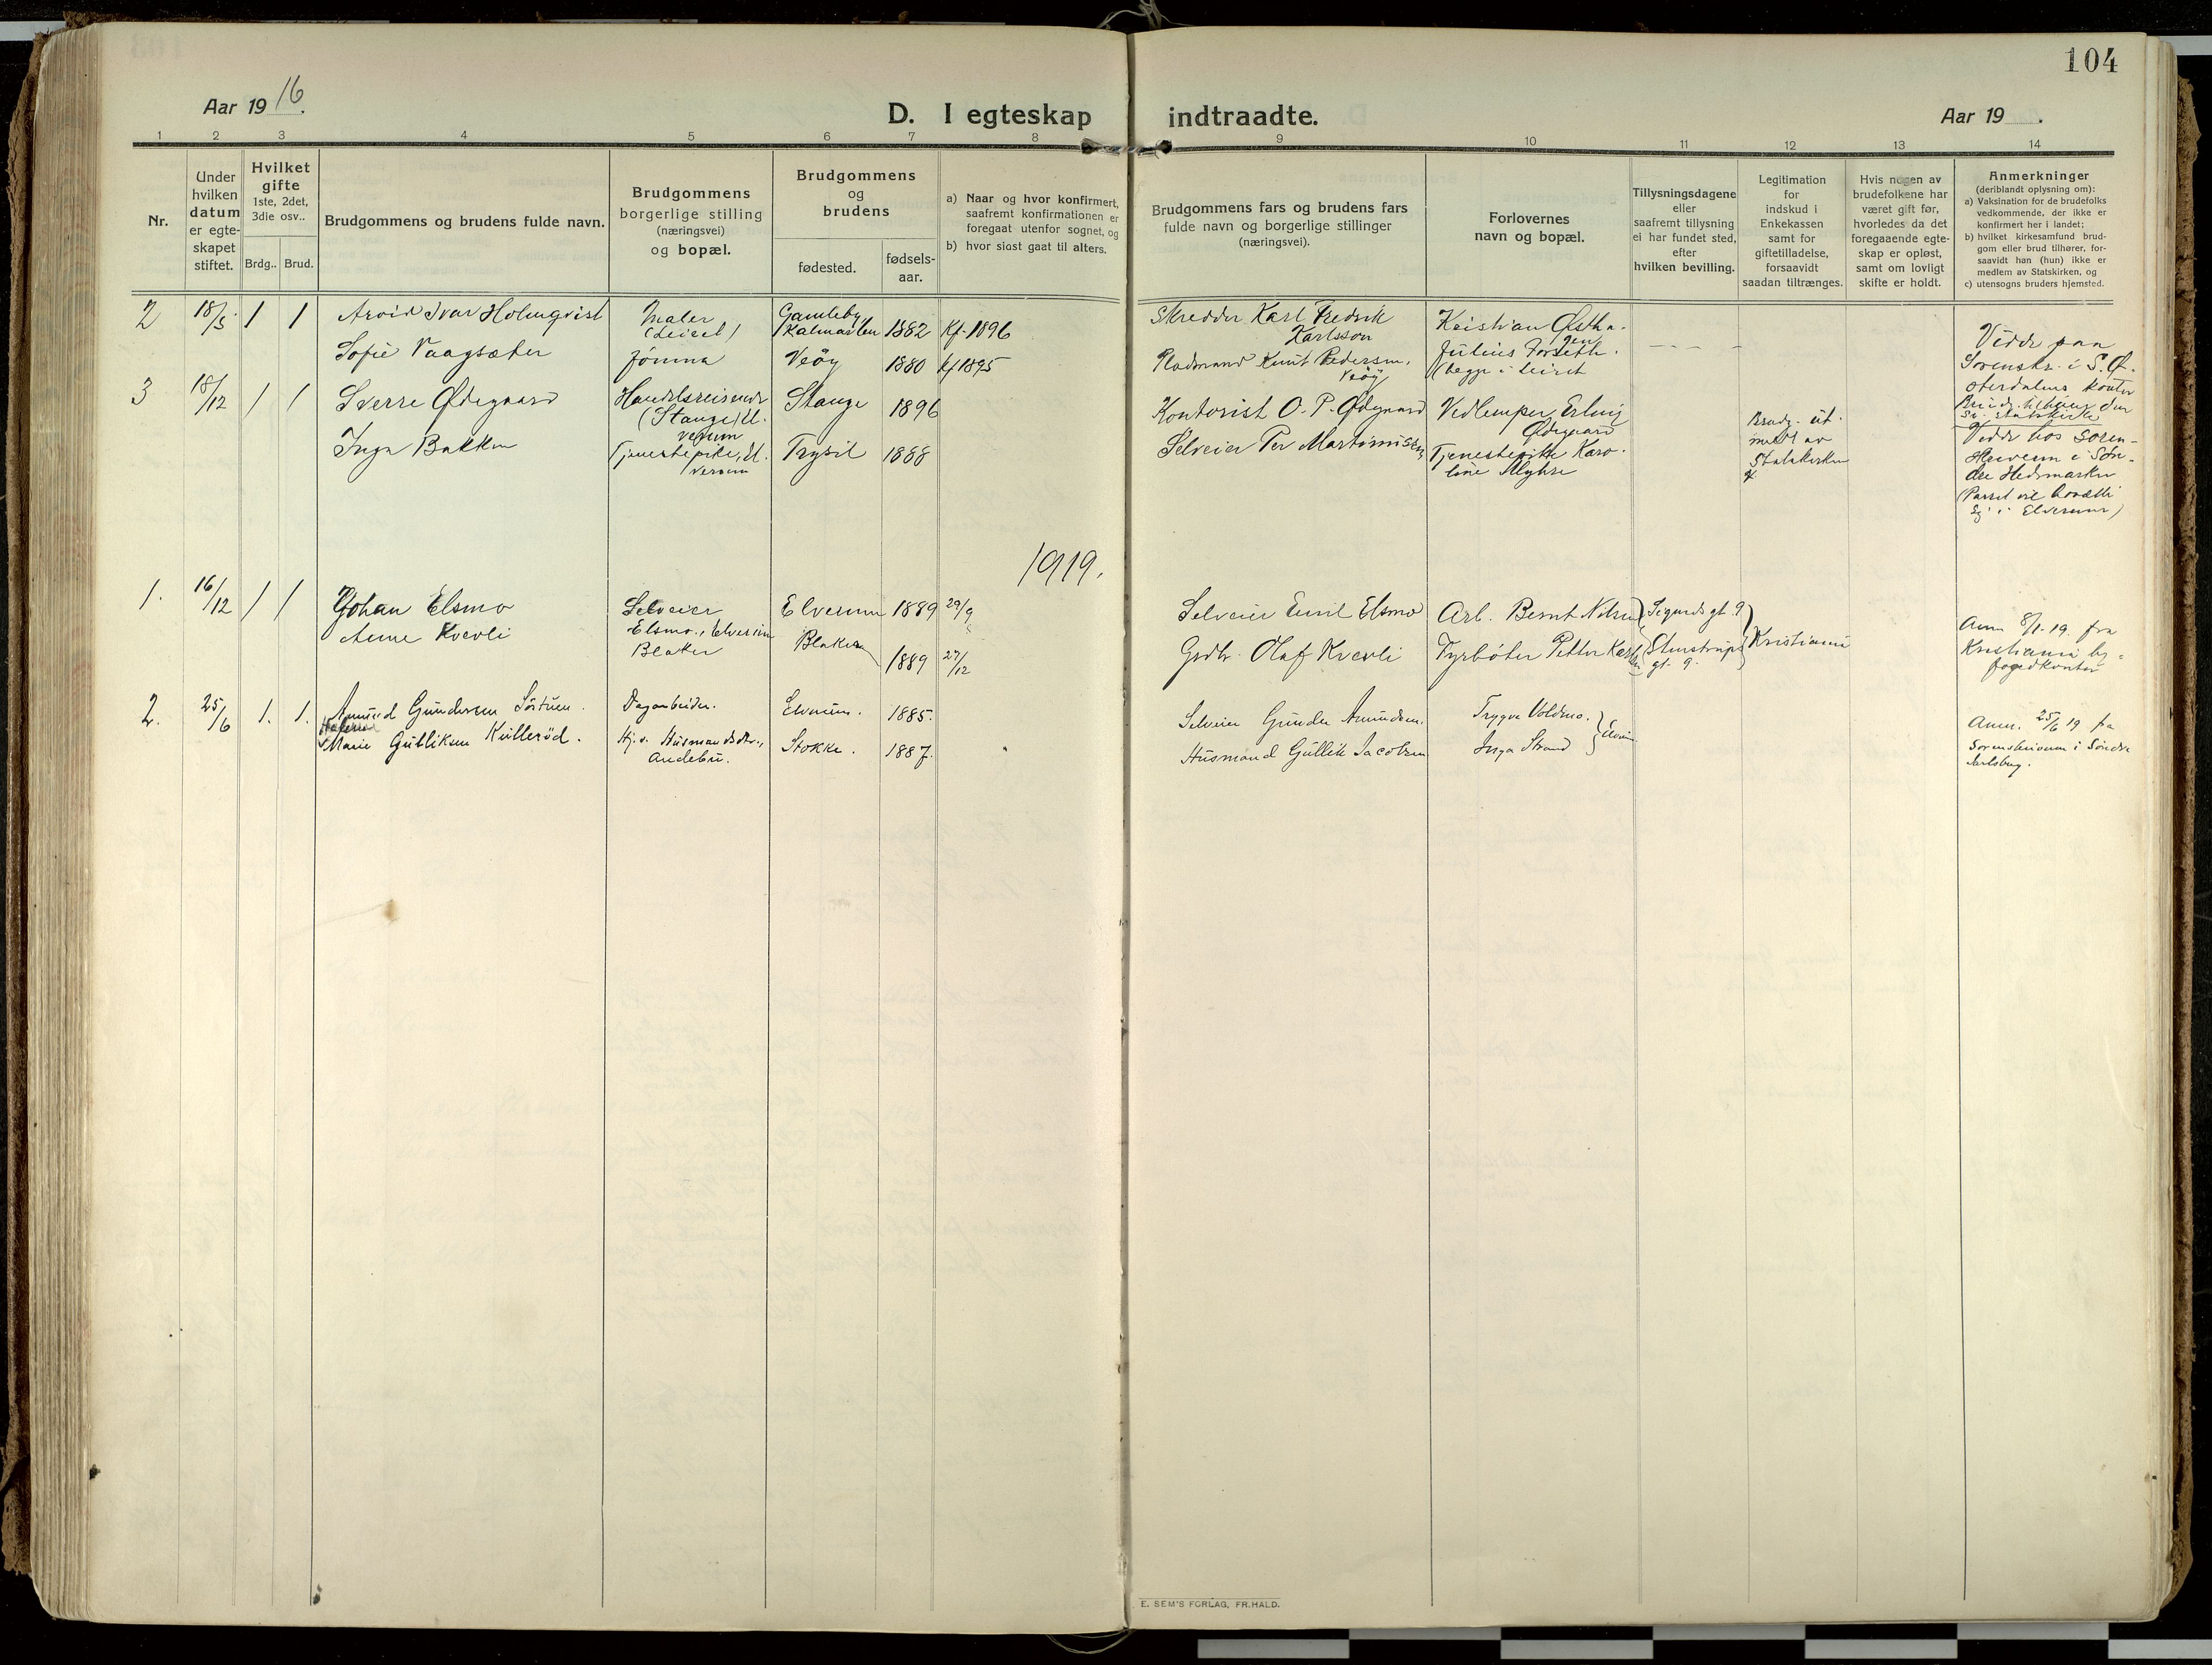 104
Aar 19 16.
D. I egteskap indtraadte.
Aar 19 .
1 2 3 4 5 6 7 8 9 10 11 12 13 14
Nr.
Under
hvilken
datum
er egte-
skapet
stiftet.
Hvilket
gifte
1ste, 2det,
3die osv..
Brdg.. Brud.
Brudgommens og brudens fulde navn.
Brudgommens
borgerlige stilling
(næringsvei)
og bopæl.
Brudgommens
og
brudens
fødested.
fødsels-
aar.
a) Naar og hvor konfirmert,
saafremt konfirmationen er
foregaat utenfor sognet, og
b) hvor sidst gaat til alters.
Brudgommens fars og brudens fars
fulde navn og borgerlige stillinger
(næringsvei).
Forlovernes
navn og bopæl.
Tillysningsdagene
eller
saafremt tillysning
ei har fundet sted,
efter
hvilken bevilling.
Legitimation
for
indskud i
Enkekassen
samt for
giftetilladelse,
forsaavidt
saadan tiltrænges.
Hvis nogen av
brudefolkene har
været gift før,
hvorledes da det
foregaaende egte-
skap er opløst,
samt om lovligt
skifte er holdt.
Anmerkninger
(deriblandt oplysning om):
a) Vaksination for de brudefolks
vedkommende, der ikke er
konfirmert her i landet;
b) hvilket kirkesamfund brud-
gom eller brud tilhører, for-
saavidt han (hun) ikke er
medlem av Statskirken, og
c) utensogns bruders hjemsted.
2 18/5 1 1
Arvid Ivar Holmqvist
Maler
(Leiret)
Gamleby,
Kalmarlen
1882 Kf. 1896
Skredder Karl Fredrik
Karlsson
Kristian Østha-
gen
Sofie Vaagsæter
Jömna
Veöy
1880 Kf 1895
Pladsmand Knut Pedersen,
Veöy
Julius Forseth.
(begge i Leiret
Viede paa
Sorenskr. i S. Ø-
sterdalens kontor
3 18/12 1 1
Sverre Ødegaard
Handelsreisende
(Stange) El-
verum
Stange
1896
Kontorist O. P. Ødegaard
Erling
Ødegaard
Inga Bakken
Tjenestepike, El-
verum
Trysil
1888
Selveier Per Martinussen
Tjenestepike Karo-
line Myhre
Brudg. ut-
meldt av
Statskirken
Viede hos Soren-
skriveren i Søn-
dre Hedemarken
(Parret vil bosætte
sig i Elverum)
1919.
1. 16/12 1 1
Johan Elsmo
Selveier
Elsmo, Elverum
Elverum 1889 29/9
Selveier Emil Elsmo
Arb. Bernt Nilsen
Sigurds gt. 9
Anne Kvevli
Blaker
Blaker
1889 27/12
Grdbr. Olaf Kvevli
Fyrböter Petter Karlsen
Stenstrups
gt. 9.
Kristiania
Anm 8/1-19. fra
Kristiania by-
fogedkontor
2. 25/6 1. 1.
Amund Gundersen Sörtuen.
Dagarbeider.
Elverum.
1885.
Selveier Gunder Amundsen.
Trygve Voldmo.
Marie Gulliksen Kvilleröd.
Hj. v. Husmandsdtr.,
Andebu.
Stokke.
1887.
Husmand Gullik Jacobsen
Inga Strand
Elverum.
Anm. 25/6 19 fra
Sorenskriveren i Söndre
Jarlsberg.
E. SEM'S FORLAG, FR.HALD.